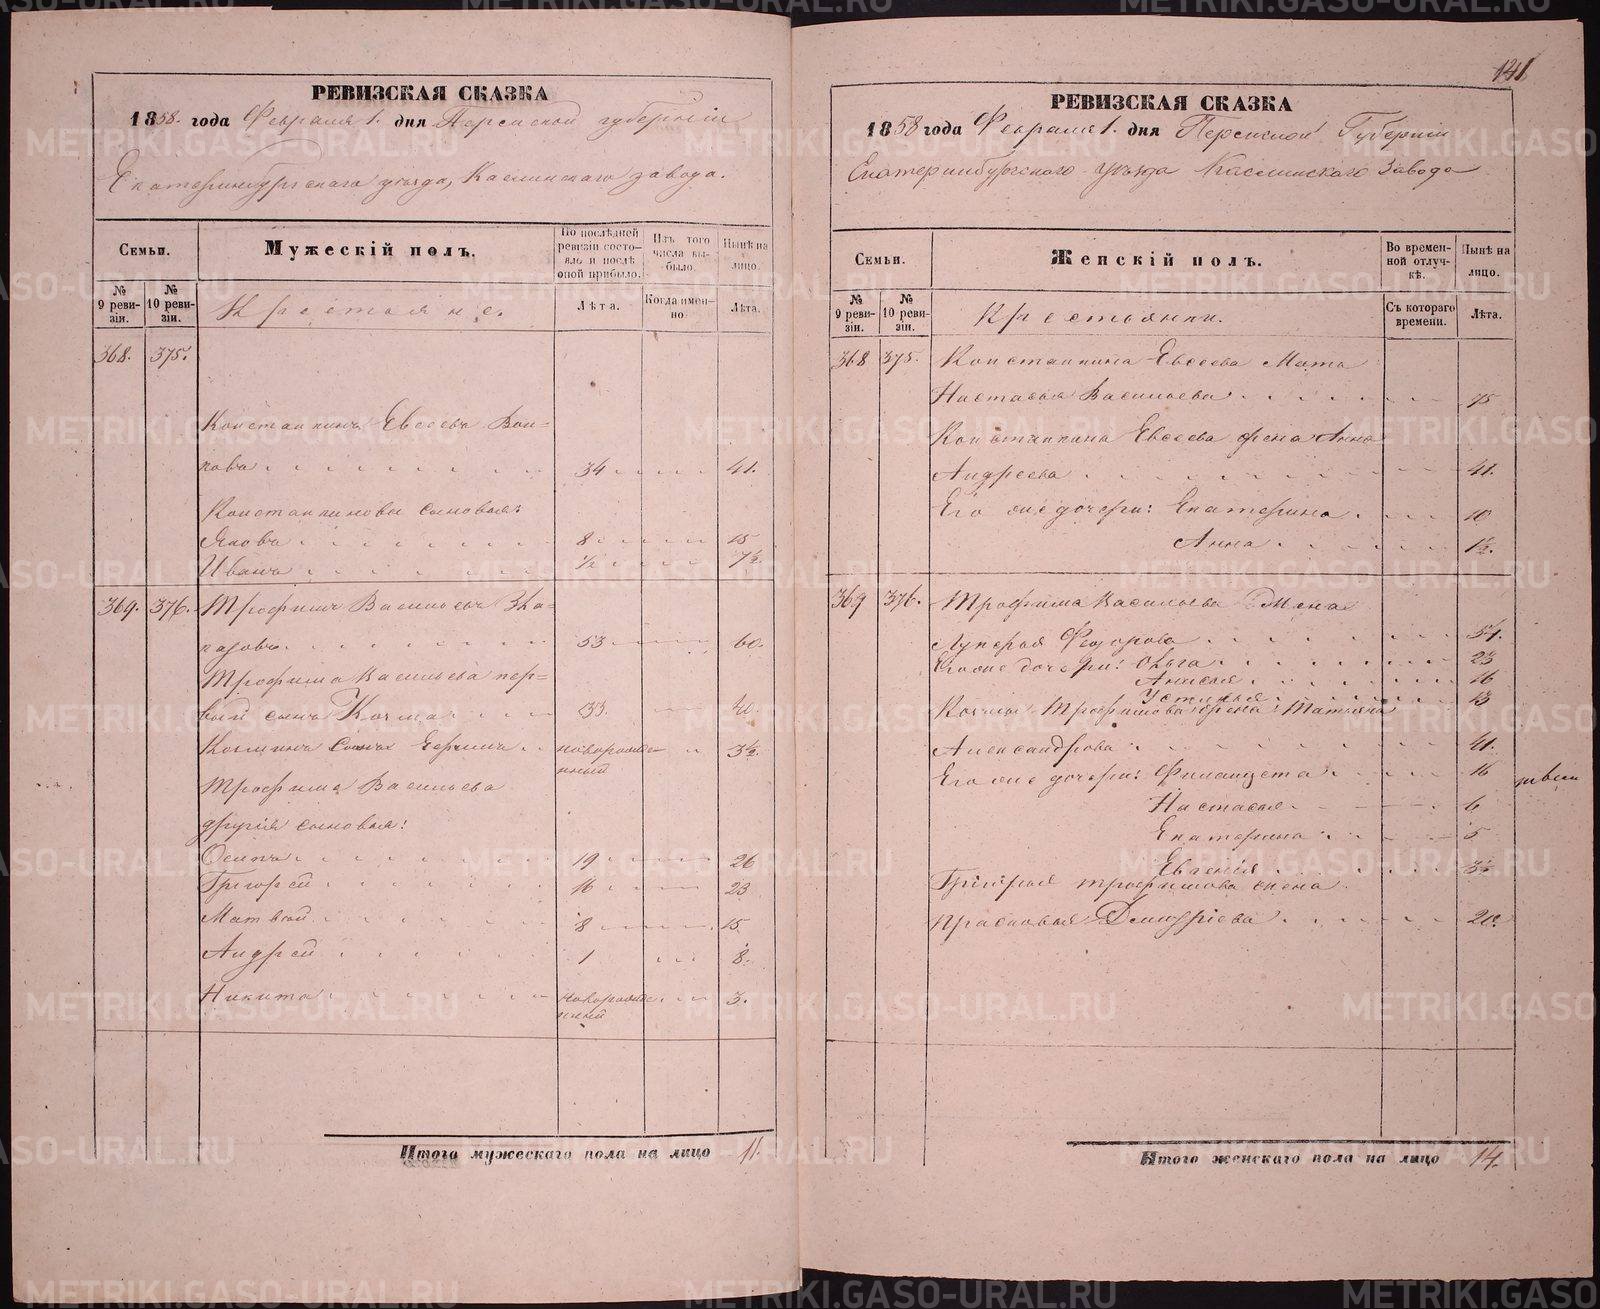 РЕВИЗСКАЯ СКАЗКА
1858. года Февраля 1. дня Пермской губерніи
Екатеринбургскаго уѣзда, Каслинскаго завода.
Семьи.
Мужескій полъ.
По послѣдней ревизіи состояло и послѣ оной прибыло.
Изъ того числа выбыло.
Нынѣ на лицо.
№ 9 ревизіи.
№ 10 ревизіи.
Крестьяне.
Лѣта.
Когда именно.
Лѣта.
368. 375.
Константинъ Евсеевъ
34 41.
Константиновы сыновья:
Яковъ 8 15
Иванъ ½ 7½.
369. 376. Трофимъ Васильевъ
53 60.
Трофима Васильева пер-
вый сынъ Козма 33. 40.
Козминъ сынъ Ефимъ новорожде-
нный 3½.
Трофима Васильева
другія сыновья:
Осипъ 19 26
Григорей 16 23
Матвей 8 15.
Андрей 1 8.
Никита новорожде-
нный 3.
Итого мужескаго пола на лицо 11.
141
РЕВИЗСКАЯ СКАЗКА
1858 года Февраля 1. дня Пермской Губерніи
Екатеринбургского уѣзда Каслинского Завода
Семьи.
Женскій полъ.
Во временной отлучкѣ.
Нынѣ на лицо.
№ 9 ревизіи.
№ 10 ревизіи.
Крестьянки.
Съ котораго времени.
Лѣта.
368 375. Константина Евсеева Мать
Настасья Васильева 75
Константина Евсеева жена Анна
Андреева 41.
Его же дочери: Екатерина 10
Анна 1½.
369 376. Трофима Васильева Жена
Лукерья Федорова 51.
Его же дочери: Ольга 23
Анисья 16
Устинья 13
Козмы Трофимова жена Татьяна
Александрова 41.
Его же дочери: Филанцета 16
Настасья 6
Екатерина 5
Евгенія 3½
Григорья Трофимова жена
Прасковья Дмитріева
Итого женскаго пола на лицо 14.